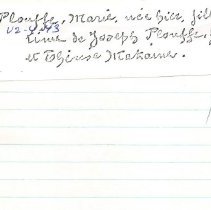 Plouffe, Marie, née hier, fil
V2-4.43
time de Joseph Plouffe,
et Thérèse Makaime.